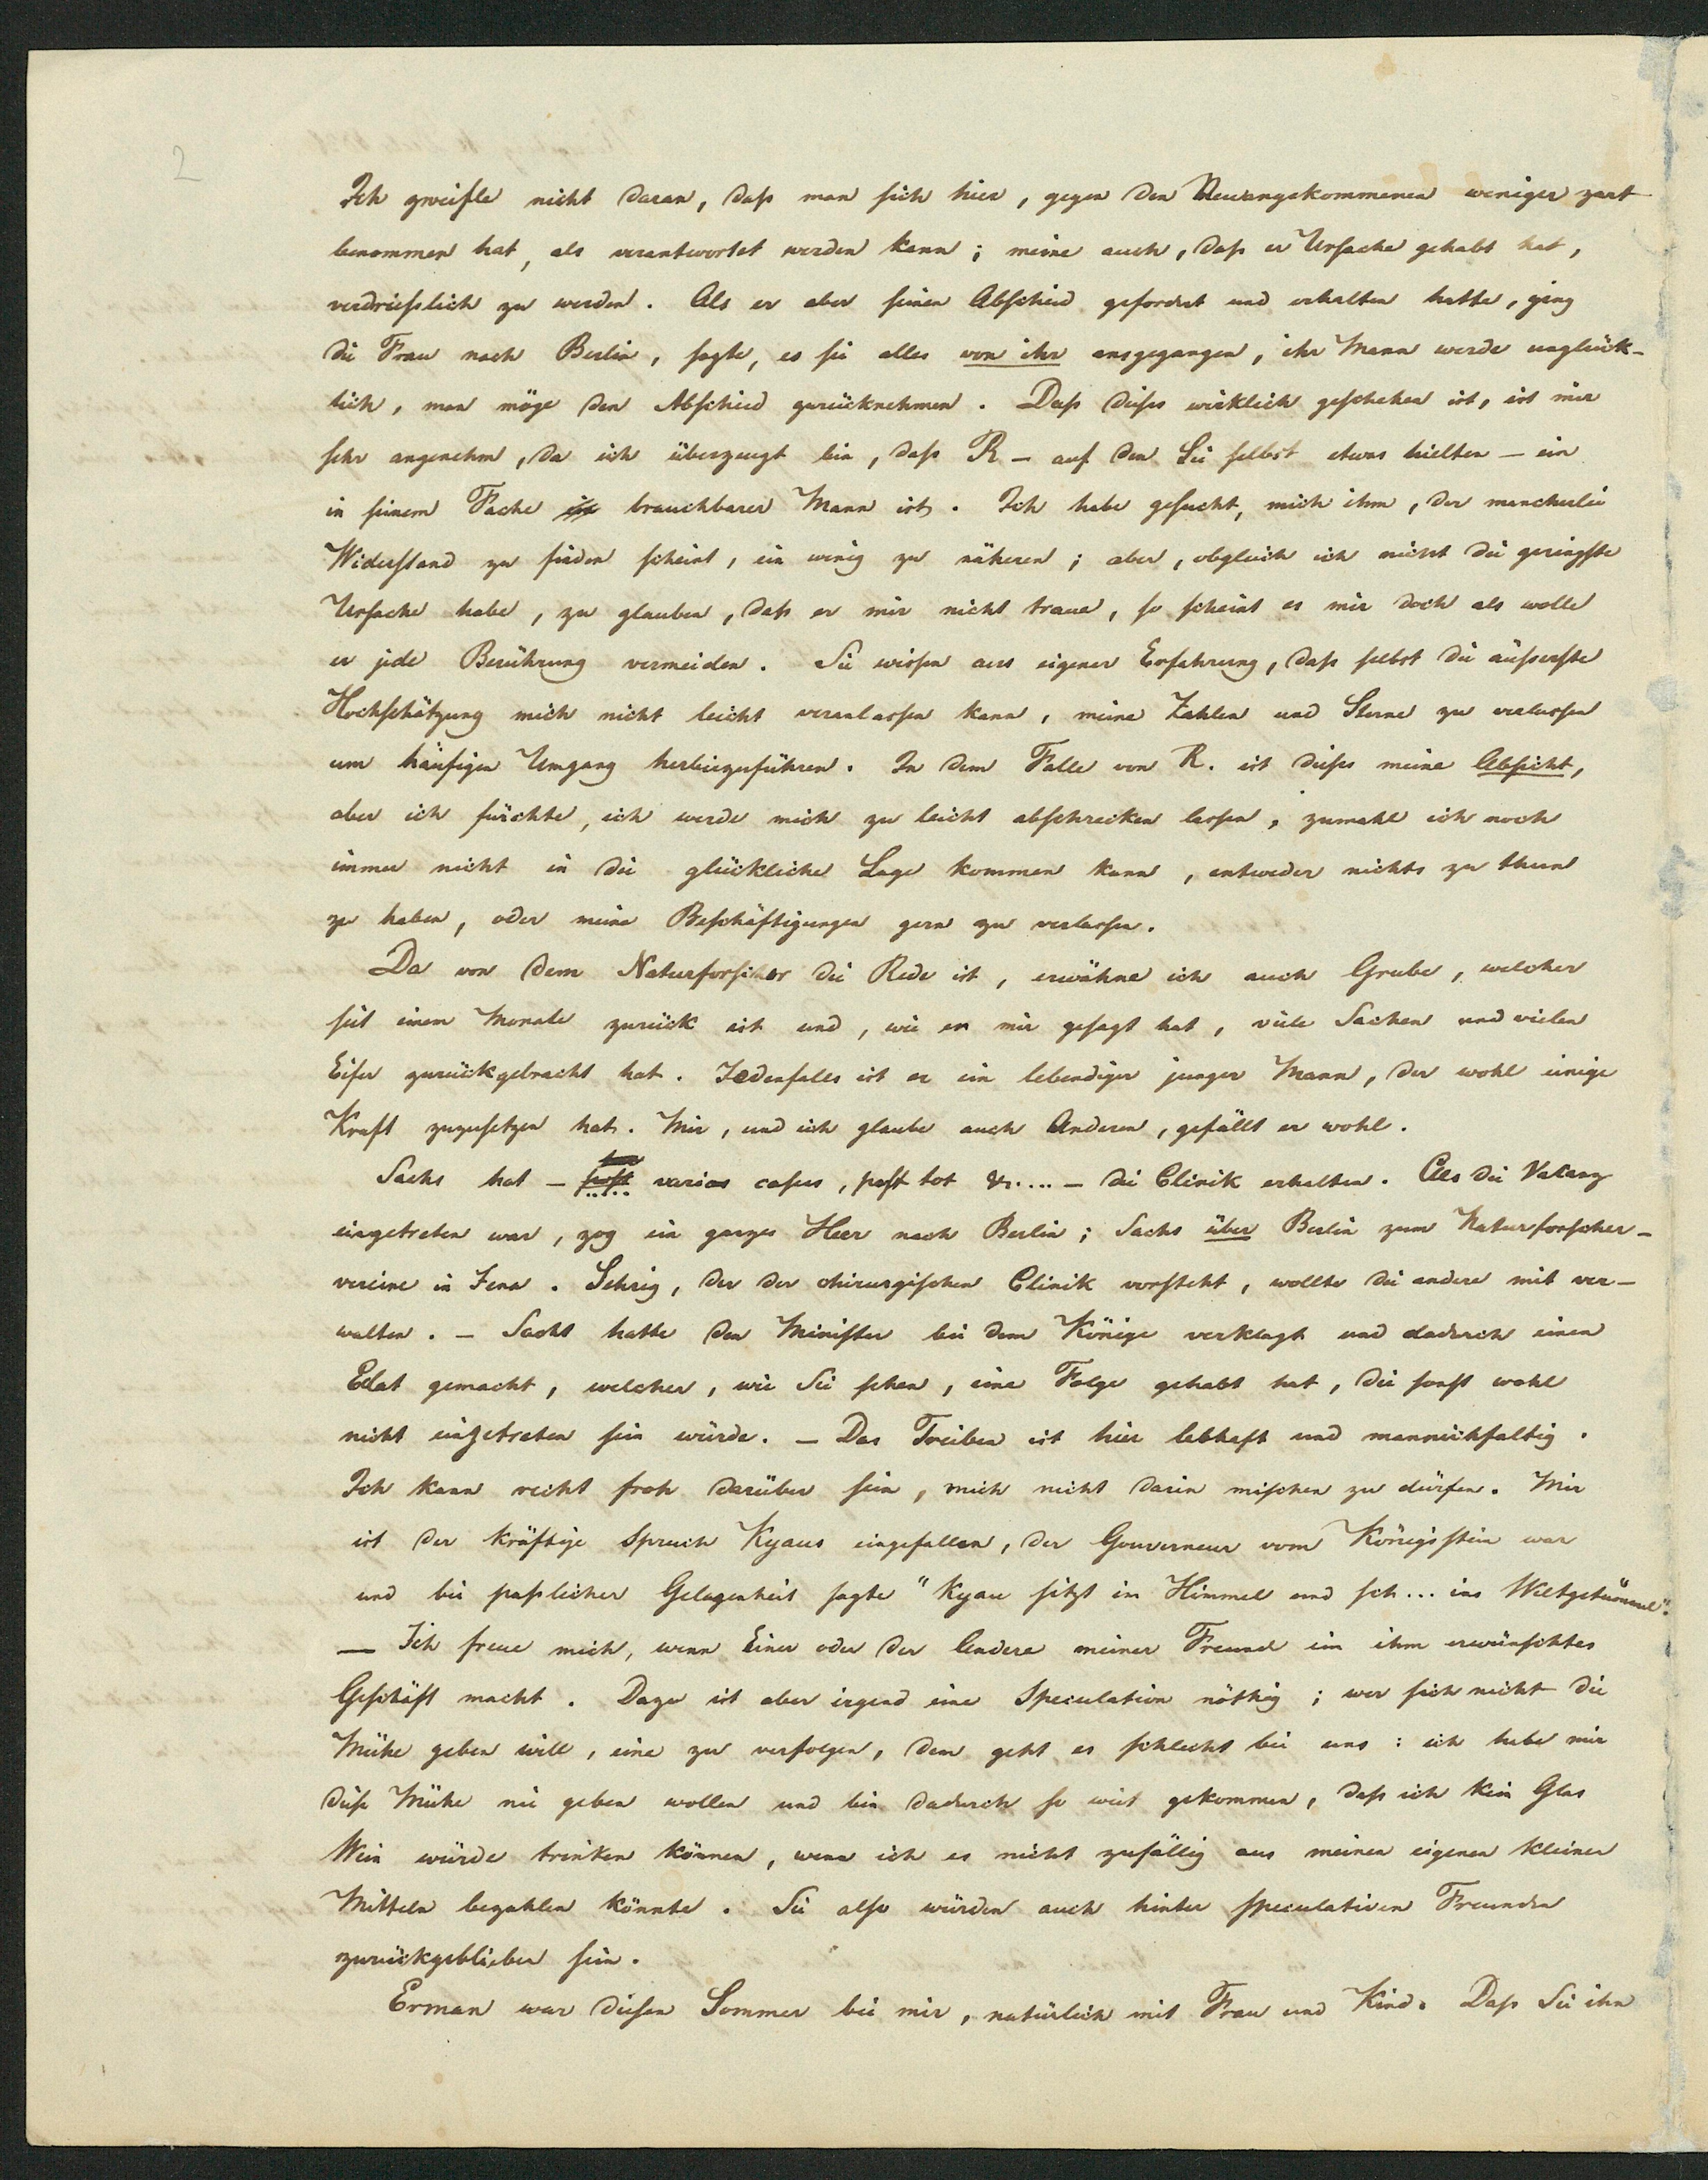 2
Ich zweifle nicht daran, daß man sich hier, gegen den Neuangekommenen weniger zart
benommen hat, als verantwortet werden kann; meine auch, daß er Ursache gehabt hat,
verdrießlich zu werden. Als er aber seinen Abschied gefordert und erhalten hatte, ging
die Frau nach Berlin, sagte, es sei alles von ihr ausgegangen, ihr Mann werde unglück-
lich, man möge den Abschied zurücknehmen. Daß dieses wirklich geschehen ist, ist mir
sehr angenehm, da ich überzeugt bin, daß R – auf den Sie selbst etwas hielten – ein
in seinem Fache brauchbarer Mann ist. Ich habe gesucht, mich ihm, der mancherlei
Widerstand zu finden scheint, ein wenig zu näheren; aber, obgleich ich nicht die geringste
Ursache habe, zu glauben, daß er mir nicht traue, so scheint es mir doch als wolle
er jede Berührung vermeiden. Sie wissen aus eigener Erfahrung, daß selbst die äußerste
Hochschätzung mich nicht leicht veranlassen kann, meine Zahlen und Sterne zu verlassen
um häufigen Umgang herbeizuführen. In dem Falle von R. ist dieses meine Absicht,
aber ich fürchte, ich werde mich zu leicht abschrecken lassen, zumahl ich noch
immer nicht in die glückliche Lage kommen kann, entweder nichts zu thun
zu haben, oder meine Beschäftigungen gern zu verlassen.
Da von dem Naturforscher die Rede ist, erwähne ich auch Grube, welcher
seit einem Monate zurück ist und, wie er mir gesagt hat, viele Sachen und vielen
Eifer zurückgebracht hat. Jedenfalls ist er ein lebendiger junger Mann, der wohl einige
Kraft zuzusetzen hat. Mir, und ich glaube auch Anderen, gefällt er wohl.
Sachs hat – post varios casus, post tot &.... – die Clinik erhalten. Als die Vakanz
eingetreten war, zog ein ganzes Heer nach Berlin; Sachs über Berlin zum Naturforscher-
vereine in Jena. Sehrig, der der chirurgischen Clinik vorsteht, wollte die andere mit ver-
walten. – Sachs hatte den Minister bei dem Könige verklagt und dadurch einen
Eclat gemacht, welcher, wie Sie sehen, eine Folge gehabt hat, die sonst wohl
nicht eingetreten sein würde. – Das Treiben ist hier lebhaft und mannichfaltig.
Ich kann recht froh darüber sein, mich nicht darin mischen zu dürfen. Mir
ist der kräftige Spruch Kyaus eingefallen, der Gouverneur vom Königsstein war
und bei paßlicher Gelegenheit sagte "Kyau sitzt im Himmel und sch... ins Weltgetümmel".
– Ich freue mich, wenn Einer oder der Andere meiner Freunde ein ihm erwünschtes
Geschäft macht. Dazu ist aber irgend eine Speculation nöthig; wer sich nicht die
Mühe geben will, eine zu verfolgen, dem geht es schlecht bei uns: ich habe mir
diese Mühe nie geben wollen und bin dadurch so weit gekommen, daß ich kein Glas
Wein würde trinken können, wenn ich es nicht zufällig aus meinen eigenen kleinen
Mitteln bezahlen könnte. Sie also würden auch hinter speculativen Freunden
zurückgeblieben sein.
Erman war diesen Sommer bei mir, natürlich mit Frau und Kind. Daß Sie ihn